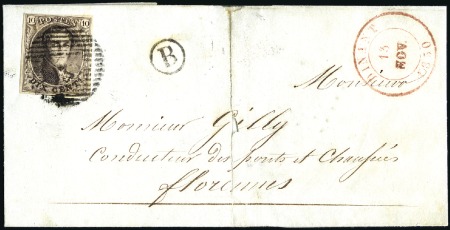 10 POSTES 10
B
DINANT
13
NOV
Monsieur
Monsieur Gilly
Conducteur des ponts et Chaussées
florennes